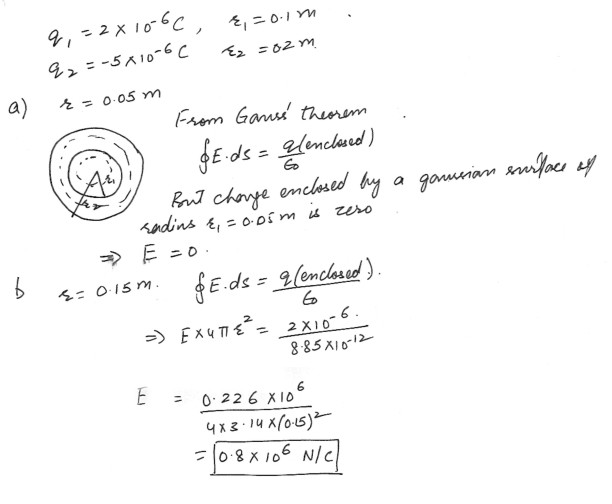 q₁ = 2 × 10⁻⁶ C , r₁ = 0.1 m .
q₂ = -5 × 10⁻⁶ C r₂ = 02 m.
a) r = 0.05 m
From Gauss' theorem
∮E.ds = q(enclosed)/ε₀
r₁
r₂
But charge enclosed by a gaussian surface of
radius r₁ = 0.05 m is zero
⇒ E = 0.
b r = 0.15 m. ∮E.ds = q(enclosed)/ε₀.
⇒ E × 4πr² = 2 × 10⁻⁶/8.85 × 10⁻¹²
E = 0.226 × 10⁶/4 × 3.14 × (0.15)²
= 0.8 × 10⁶ N/C